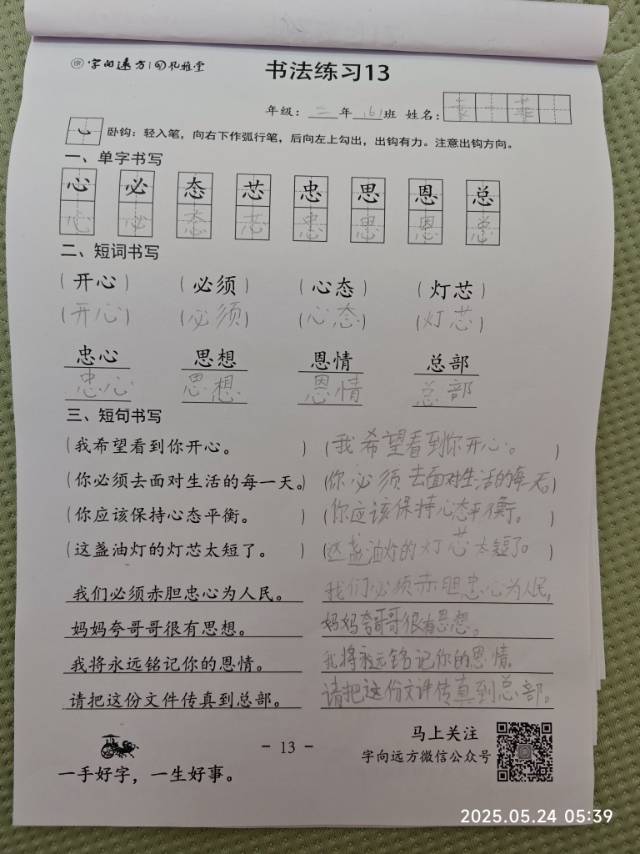 字向远方 孔雅堂
书法练习13
年级：二年(6)班 姓名：
卧钩：轻入笔，向右下作弧行笔，后向左上勾出，出钩有力。注意出钩方向。
一、单字书写
心 必 态 芯 忠 思 恩 总
心 必 态 芯 忠 思 恩 总
二、短词书写
(开心) (必须) (心态) (灯芯)
(开心) (必须) (心态) (灯芯)
忠心 思想 恩情 总部
忠心 思想 恩情 总部
三、短句书写
(我希望看到你开心。) (我希望看到你开心。)
(你必须去面对生活的每一天。) (你必须去面对生活的每天)
(你应该保持心态平衡。) (你应该保持心态平衡。)
(这盏油灯的灯芯太短了。) (这盏油灯的灯芯太短了。)
我们必须赤胆忠心为人民。 我们必须赤胆忠心为人民,
妈妈夸哥哥很有思想。 妈妈夸哥哥很有思想。
我将永远铭记你的恩情。 我将永远铭记你的恩情。
请把这份文件传真到总部。 请把这份文件传真到总部。
一手好字，一生好事。
- 13 -
马上关注
字向远方微信公众号
2025.05.24 05:39